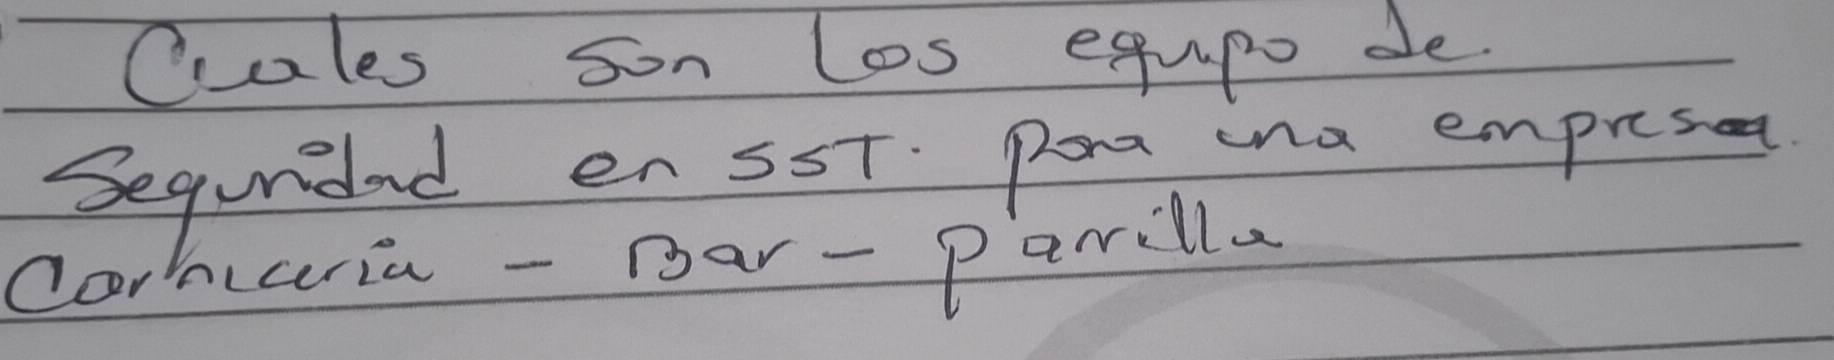 Cuales son los equipo de.
Seguridad en SST. para una empresa.
Carniceria - Bar - parrilla